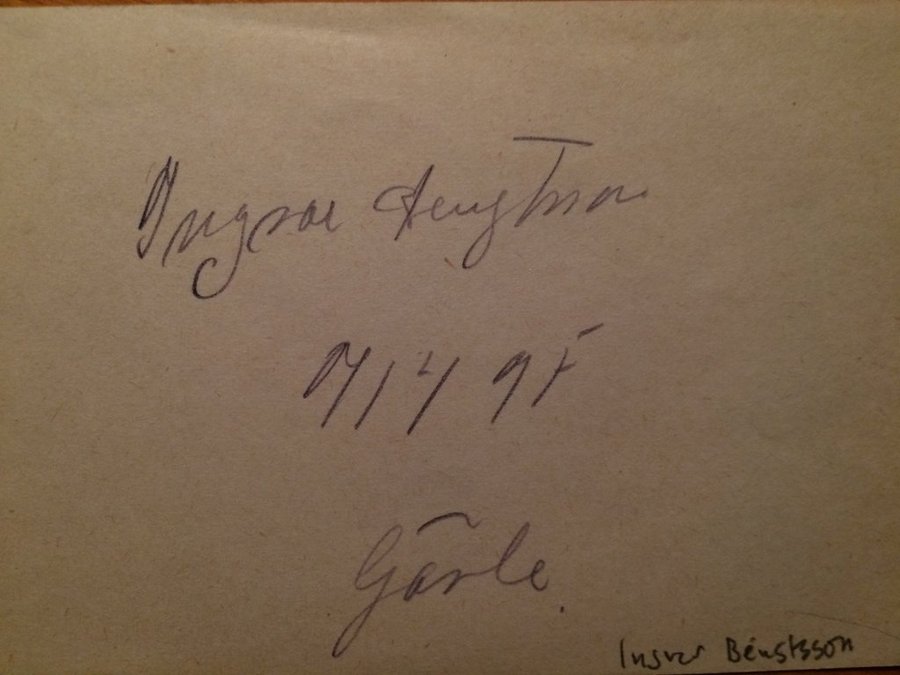 Ingvar Bengtsson
Gävle
Ingvar Bengtsson